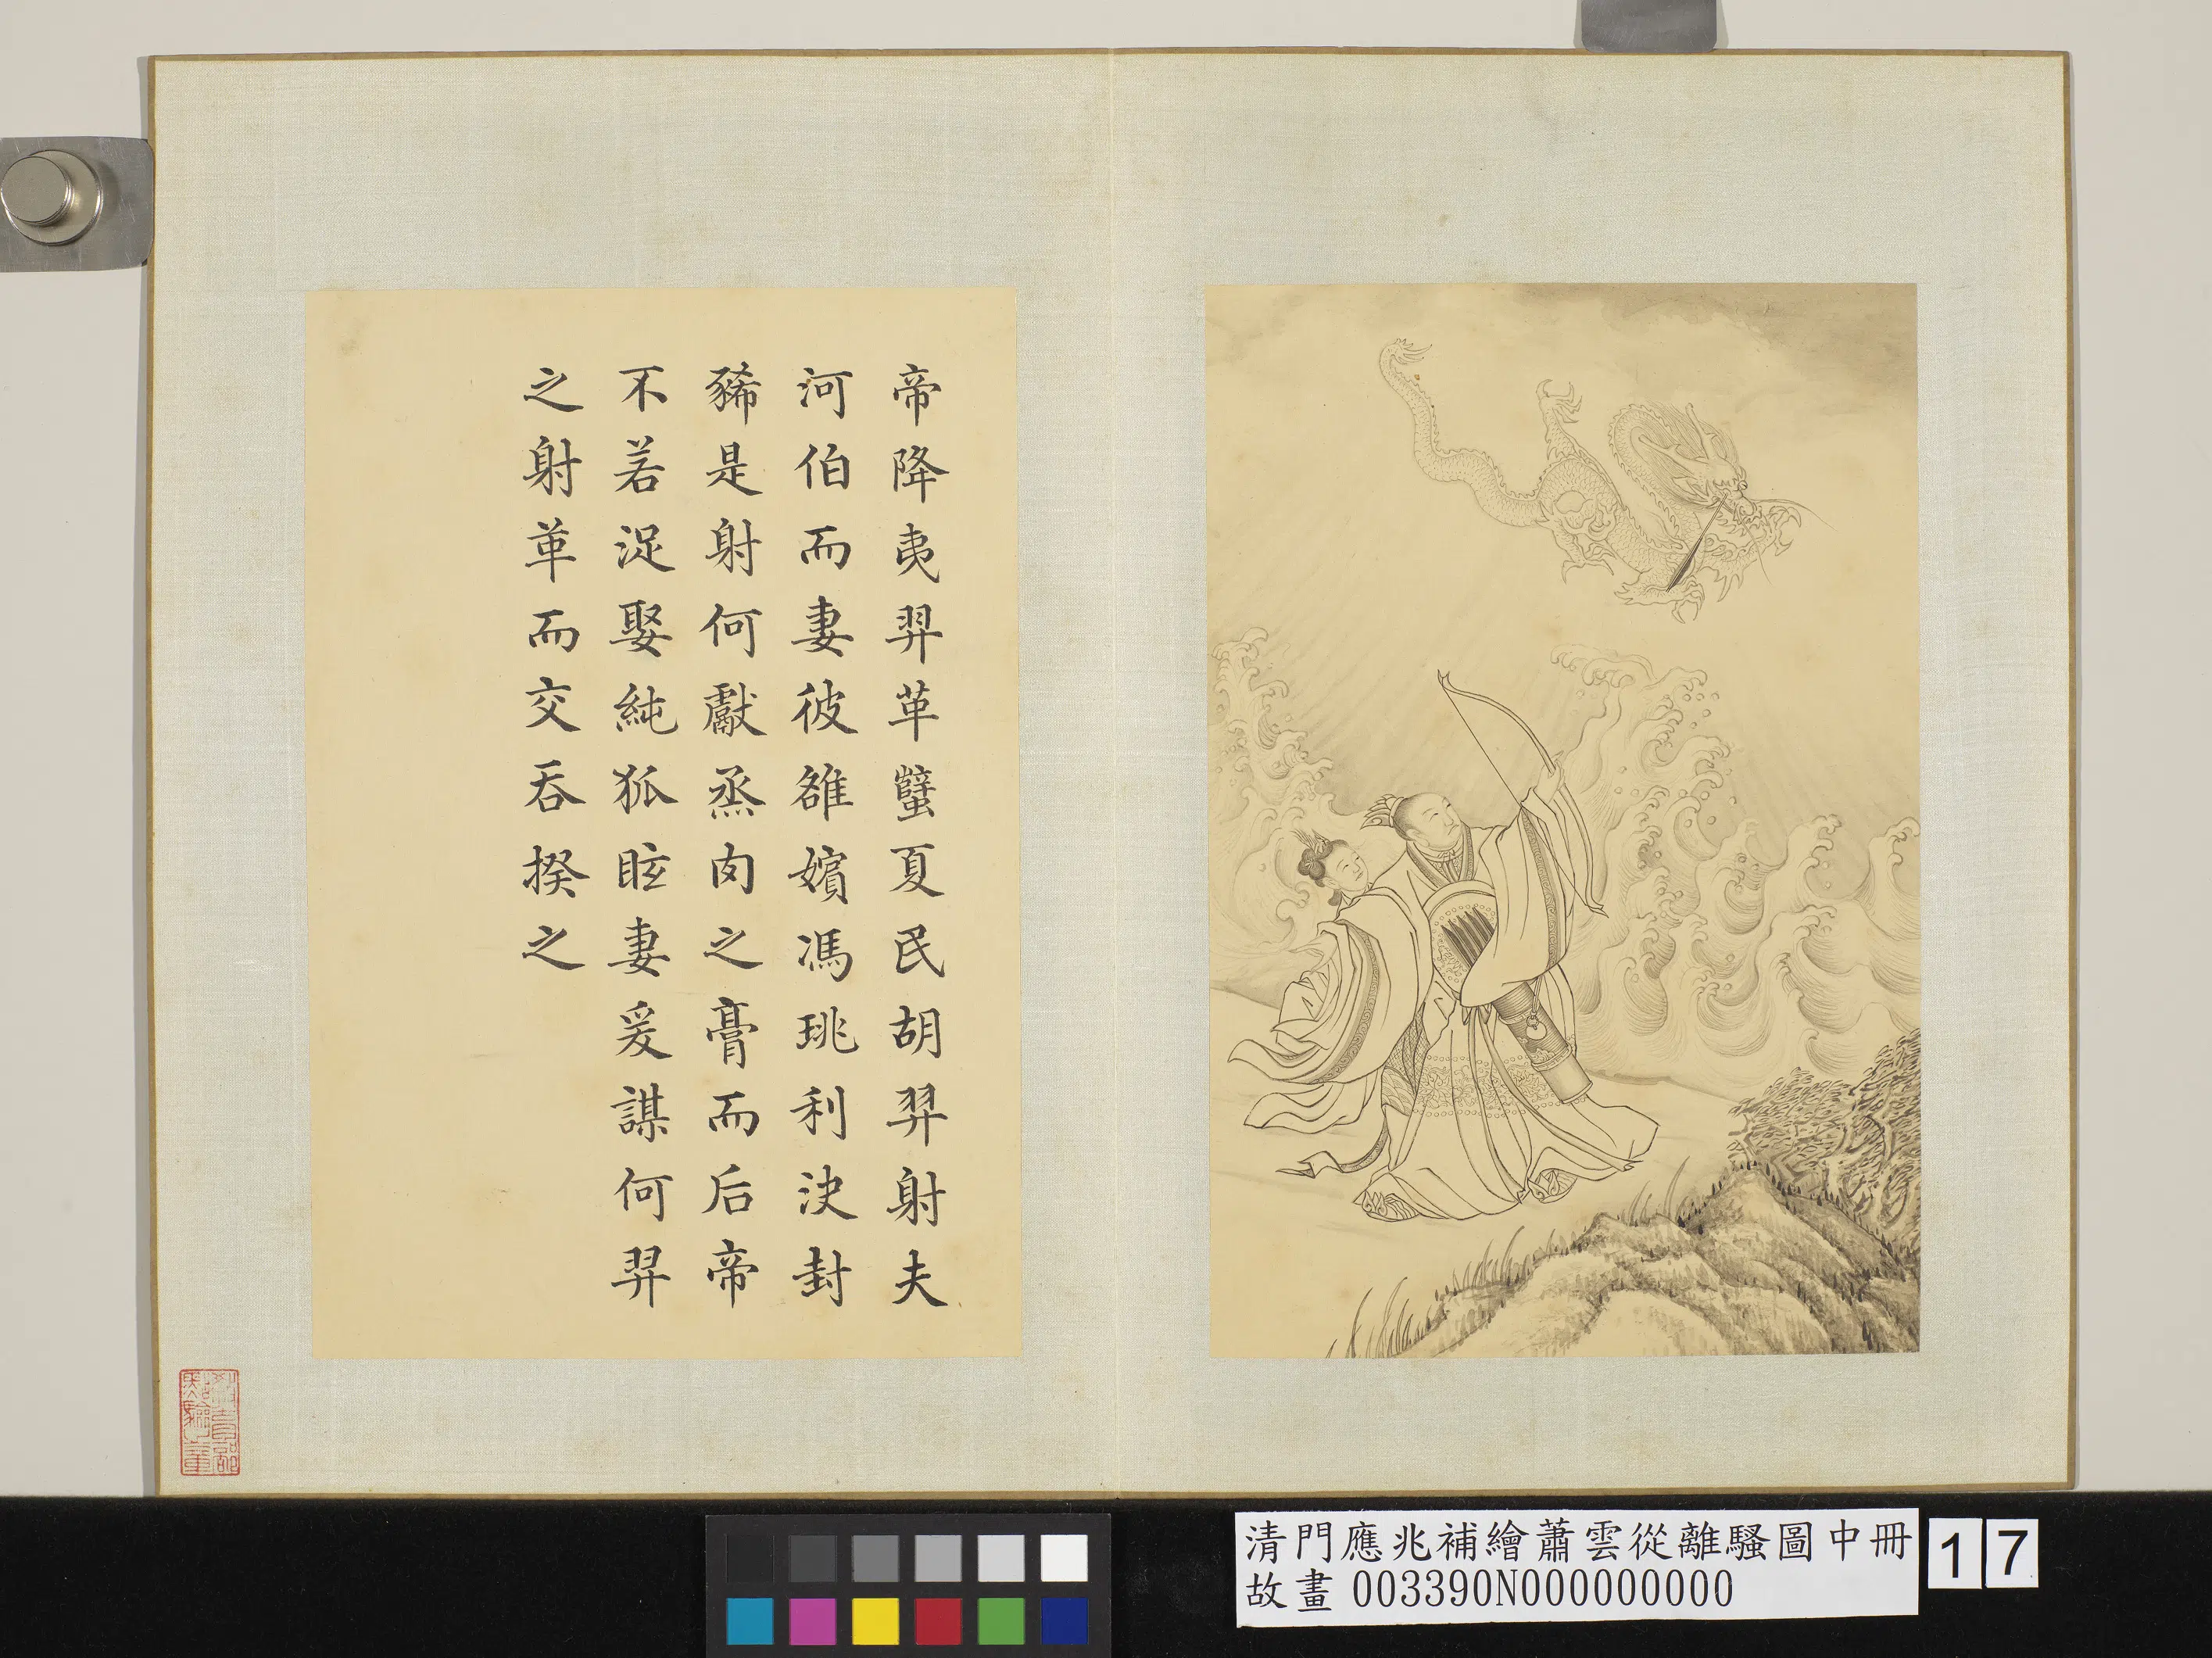 帝降夷羿革孽夏民胡羿射夫
河伯而妻彼雒嬪馮珧利決封
豨是射何獻烝肉之膏而后帝
不若浞娶純狐眩妻爰謀何羿
之射革而交吞揆之
清門應兆補繪蕭雲從離騷圖中冊
故畫 003390N000000000
17